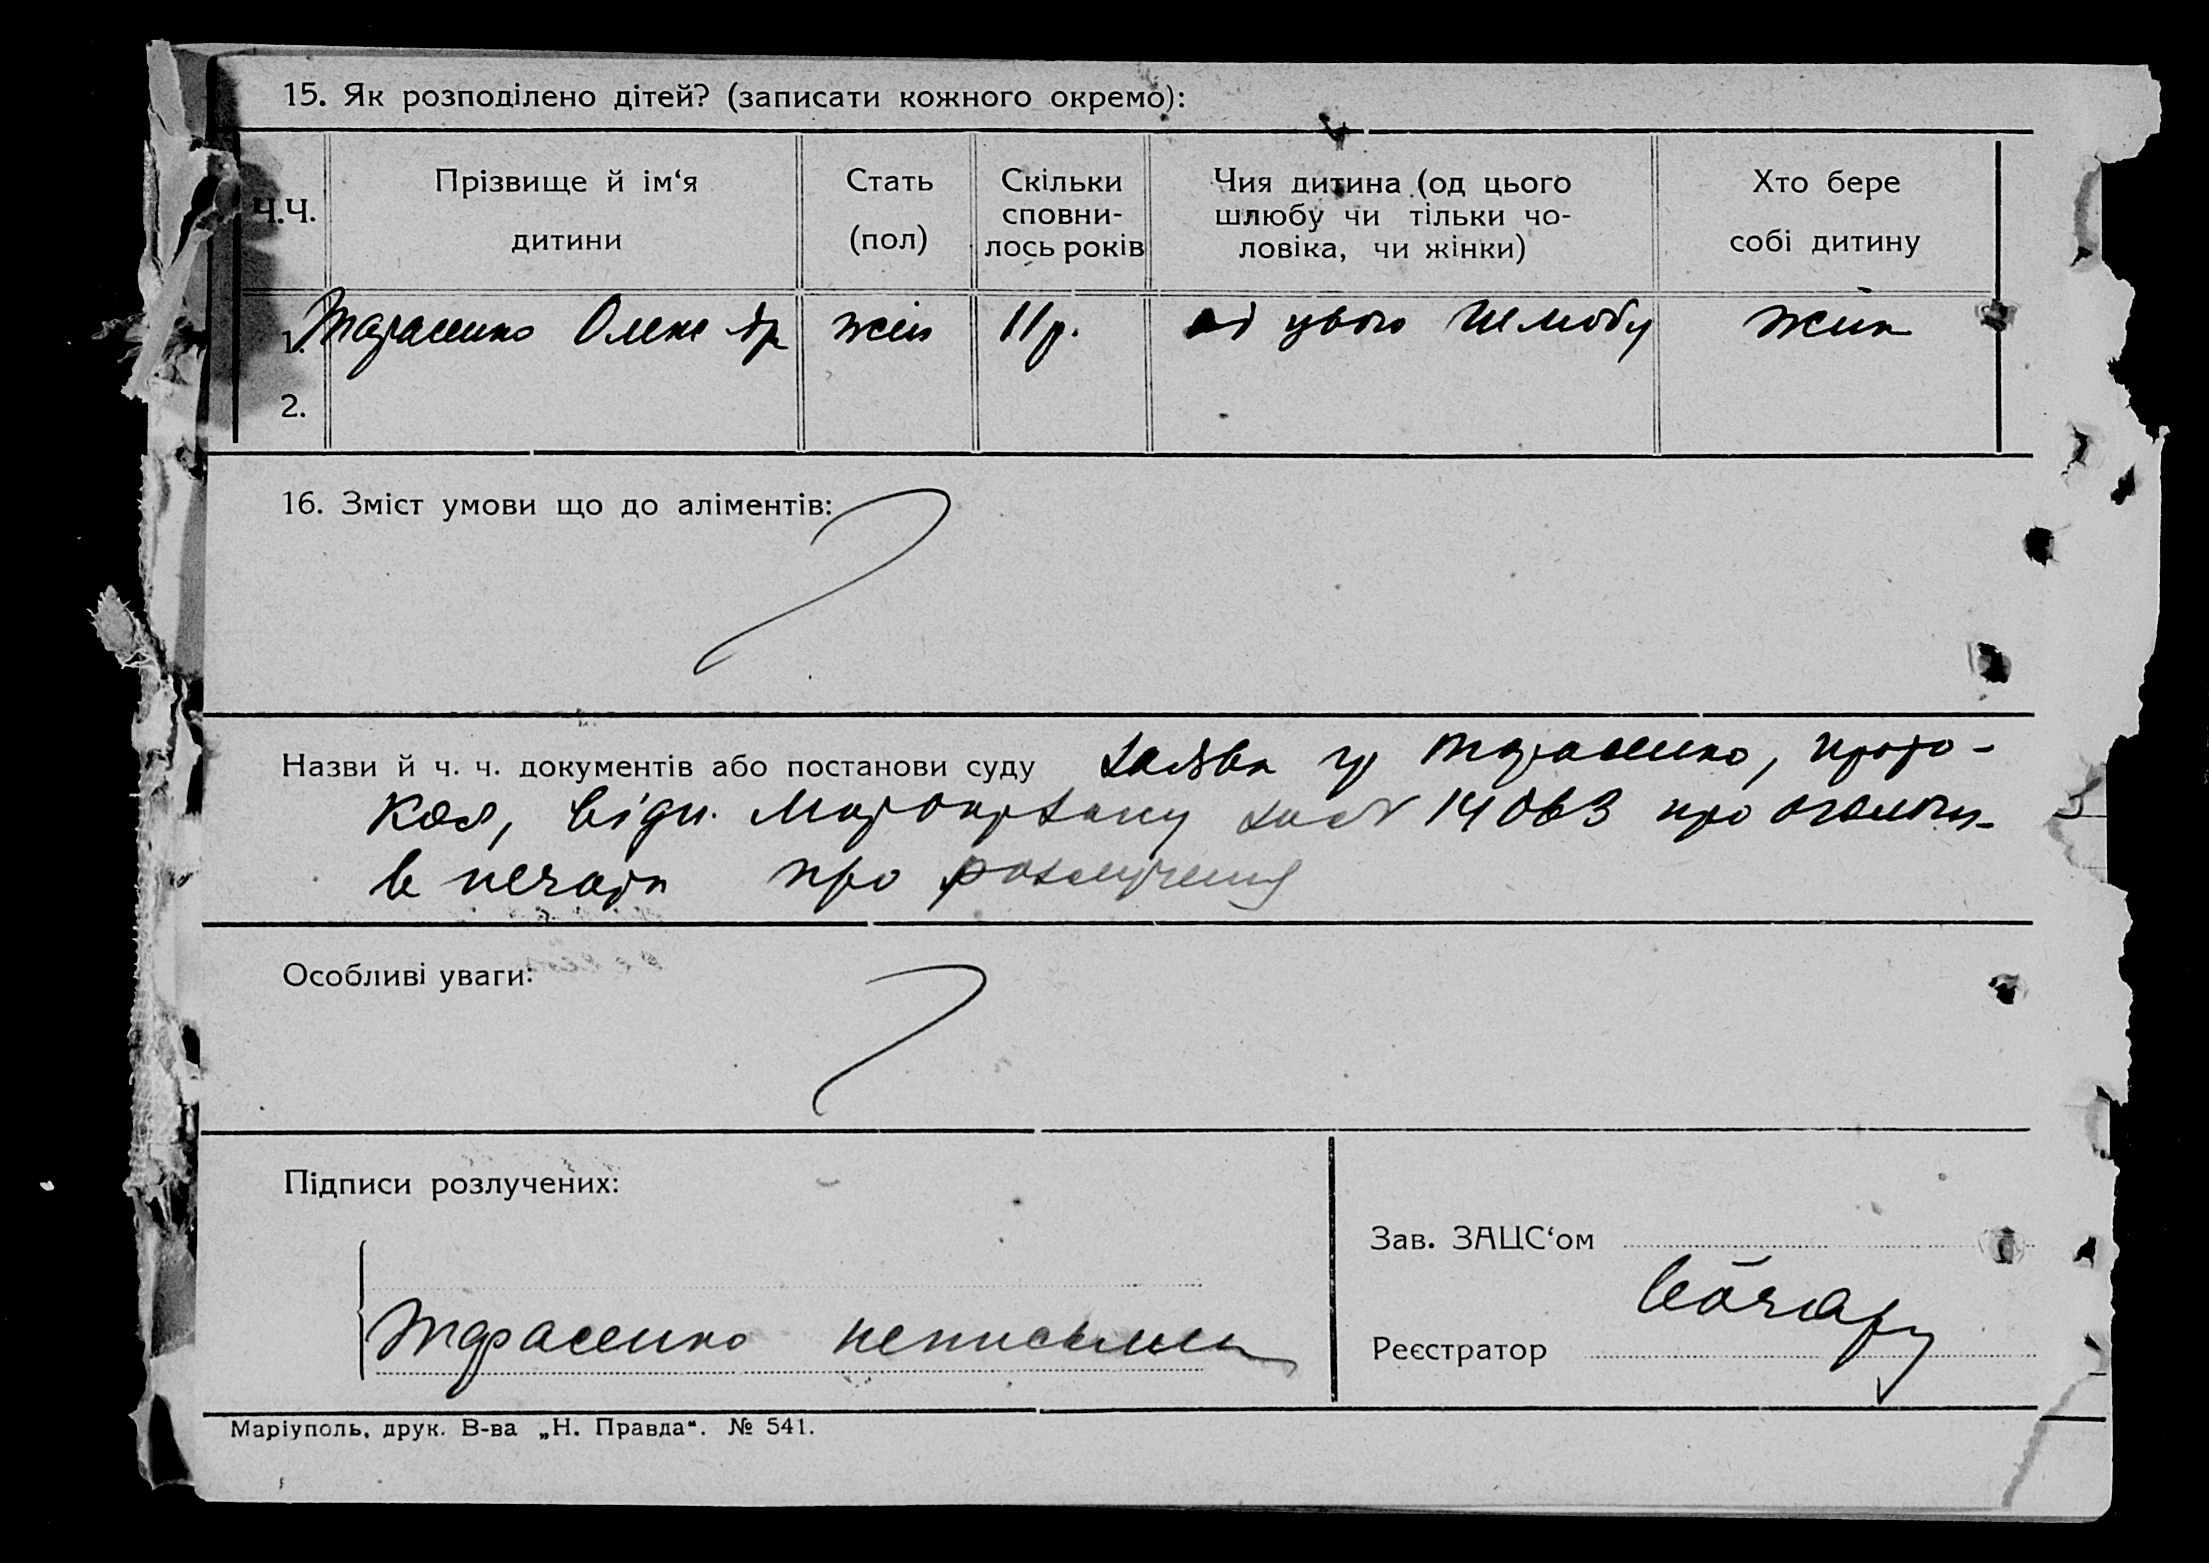 15. Як розподілено дітей? (записати кожного окремо):
Ч.Ч.
Прізвище й ім‘я
дитини
Стать
(пол)
Скільки
сповни-
лось років
Чия дитина (од цього
шлюбу чи тільки чо-
ловіка, чи жінки)
Хто бере
собі дитину
1. Тарасенко жін 11 р. від цього шлюбу жінк
2.
16. Зміст умови що до аліментів:
Назви й ч. ч. документів або постанови суду заява гр Тарасенко, прото-
кол, відн. 14063 про
в печати про розлучення
Особливі уваги:
Підписи розлучених:
Зав. ЗАЦС‘ом
Тарасенко неписьмен
Реєстратор
Маріуполь, друк. В-ва „Н. Правда“. № 541.